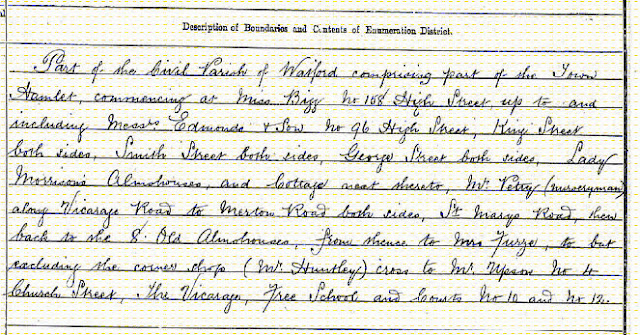 Description of Boundaries and Contents of Enumeration District.
Part of the Civil Parish of Watford comprising part of the Town
Hamlet, commencing at Miss Bigg No 108 High Street, up to and
including Messrs Edmonds & Son No 96 High Street, King Street
both sides, Smith Street both sides, George Street both sides, Lady
Morrison's Almshouses, and Cottage next thereto, Mr. Petty (Nurseryman)
along Vicarage Road to Merton Road both sides, St Marys Road, then
back to the 8 Old Almshouses, from thence to Mrs Furze, to but
excluding the corner shop (Mr Huntley) cross to Mr. Upson No 4
Church Street, The Vicarage, Free School and Courts No 10 and No 12.